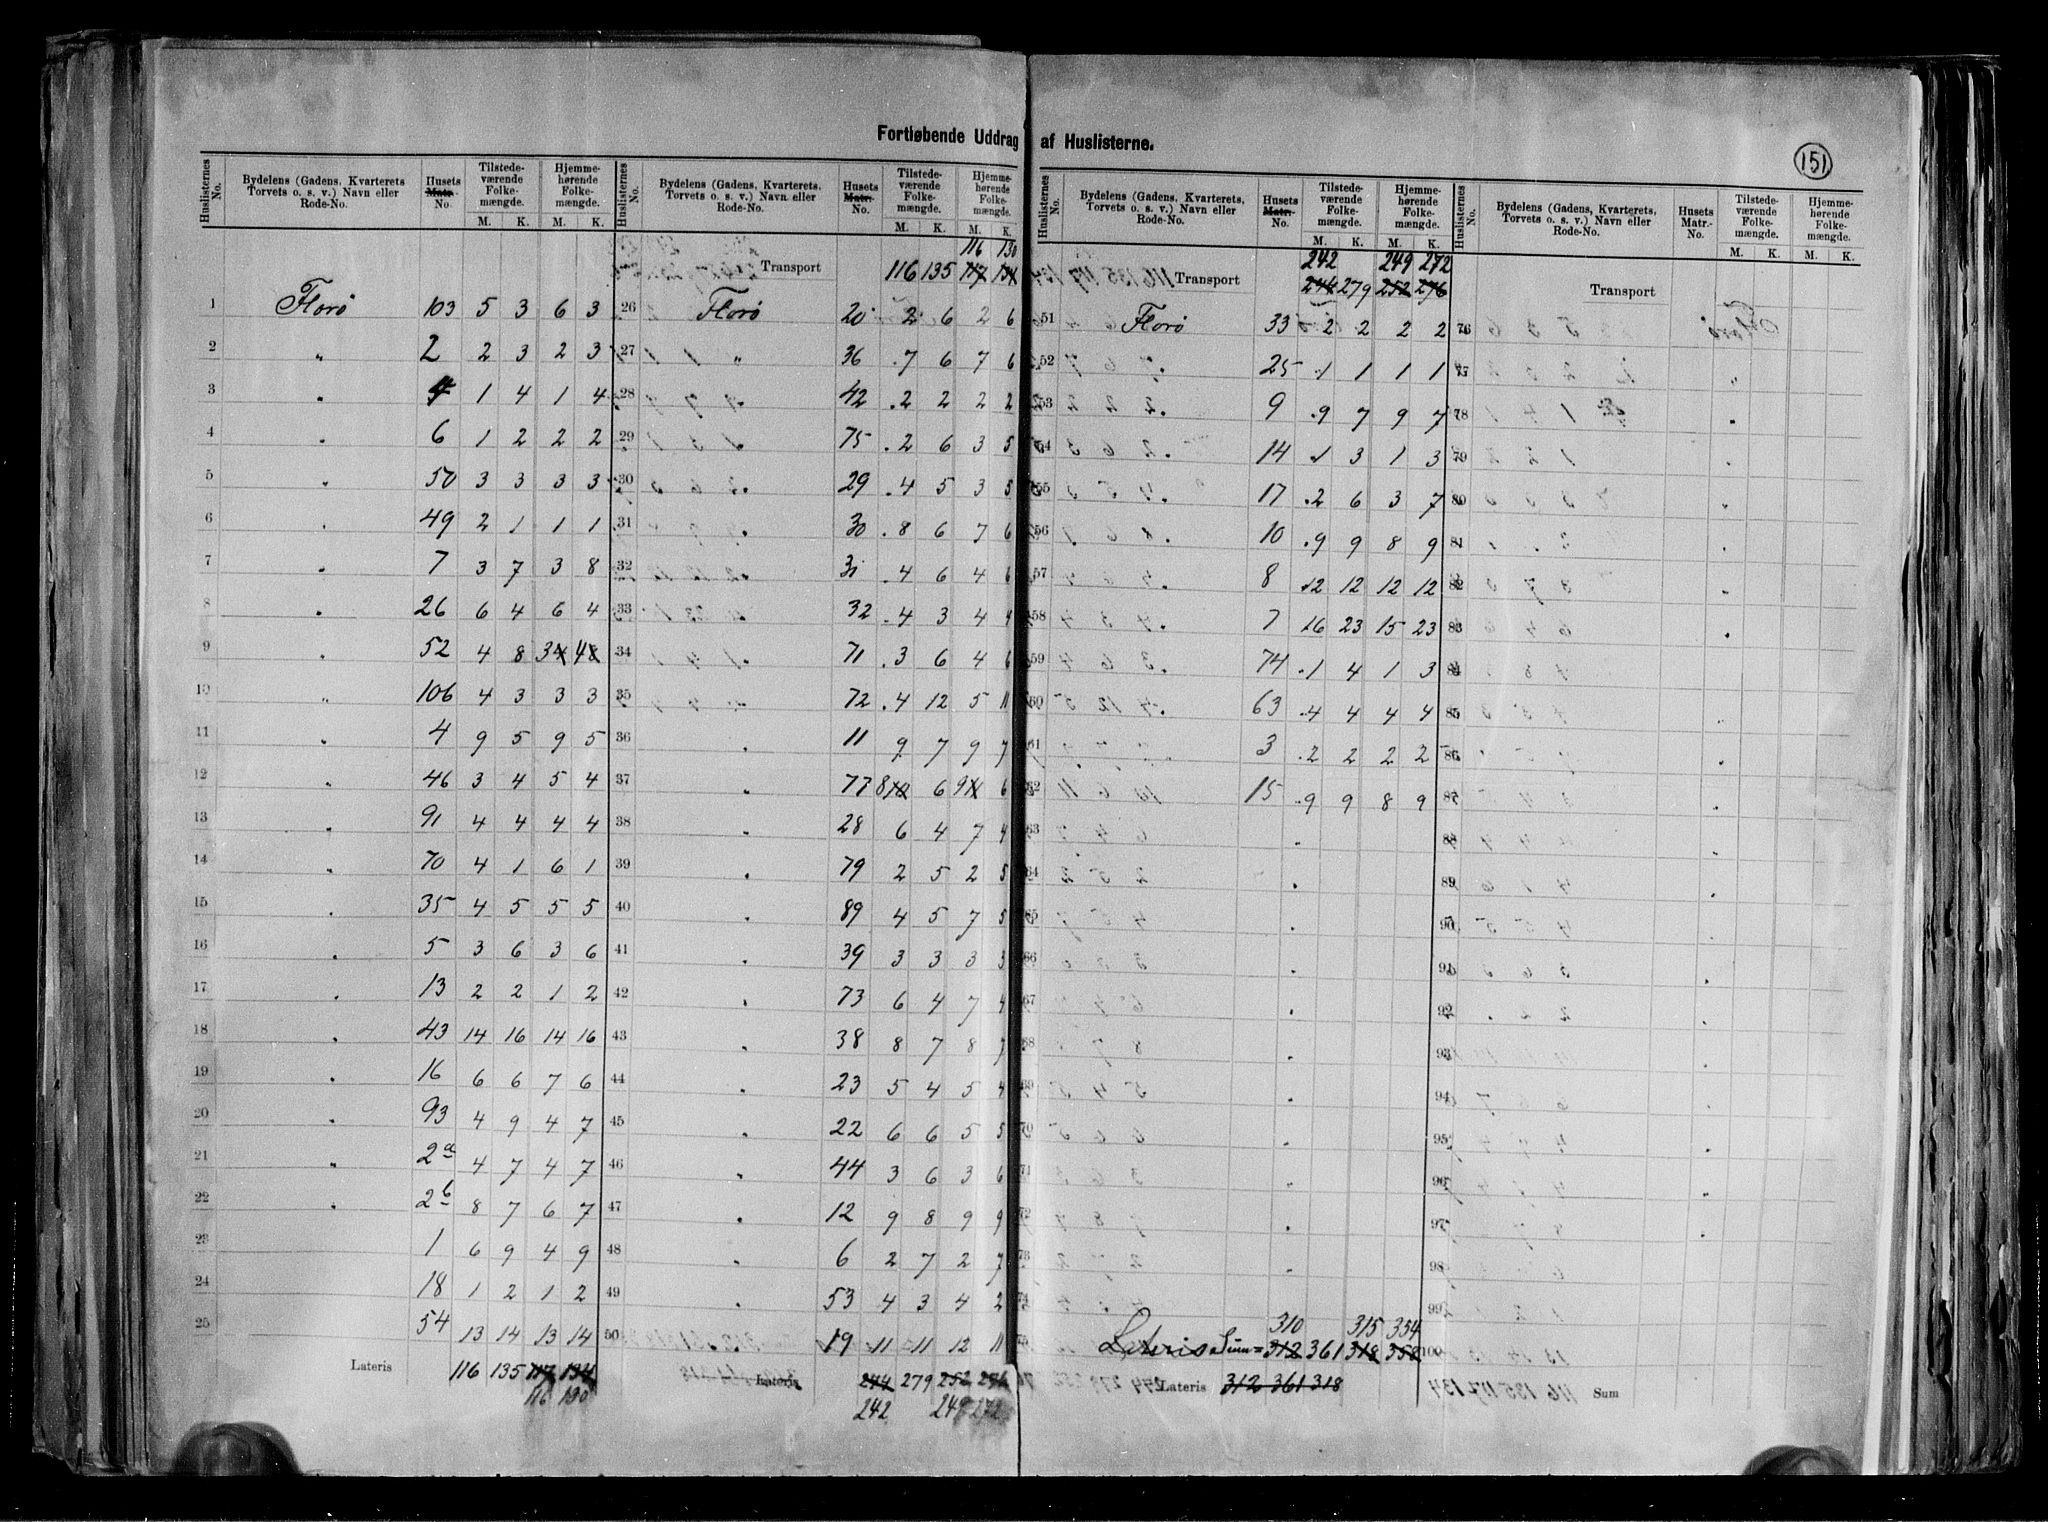 Fortløbende Uddrag af Huslisterne.
151
Huslisternes No. | Bydelens (Gadens, Kvarterets Torvets o. s. v.) Navn eller Rode-No. | Husets Matr. No. | Tilstedeværende Folkemængde. M. K. | Hjemmehørende Folkemængde. M. K.
1 Florø 103 5 3 6 3
2 „ 2 2 3 2 3
3 „ 4 1 4 1 4
4 „ 6 1 2 2 2
5 „ 50 3 3 3 3
6 „ 49 2 1 1 1
7 „ 7 3 7 3 8
8 „ 26 6 4 6 4
9 „ 52 4 8 3 4
10 „ 106 4 3 3 3
11 „ 4 9 5 9 5
12 „ 46 3 4 5 4
13 „ 91 4 4 4 4
14 „ 70 4 1 6 1
15 „ 35 4 5 5 5
16 „ 5 3 6 3 6
17 „ 13 2 2 1 2
18 „ 43 14 16 14 16
19 „ 16 6 6 7 6
20 „ 93 4 9 4 7
21 „ 2a 4 7 4 7
22 „ 2b 8 7 6 7
23 1 6 9 4 9
24 18 1 2 1 2
25 54 13 14 13 14
Lateris 116 135 117 134
116 130
Huslisternes No. | Bydelens (Gadens, Kvarterets, Torvets o. s. v.) Navn eller Rode-No. | Husets Matr. No. | Tilstedeværende Folkemængde. M. K. | Hjemmehørende Folkemængde. M. K.
116 130
Transport 116 135 117 134
26 Florø 20 2 6 2 6
27 „ 36 7 6 7 6
28 „ 42 2 2 2 2
29 „ 75 2 6 3 5
30 „ 29 4 5 3 5
31 „ 30 8 6 7 6
32 „ 31 4 6 4 6
33 „ 32 4 3 4 4
34 „ 71 3 6 4 6
35 „ 72 4 12 5 11
36 „ 11 9 7 9 7
37 „ 77 8 10 6 9 11 6
38 „ 28 6 4 7 4
39 „ 79 2 5 2 5
40 „ 89 4 5 7 5
41 „ 39 3 3 3 3
42 „ 73 6 4 7 4
43 „ 38 8 7 8 7
44 „ 23 5 4 5 4
45 „ 22 6 6 5 5
46 „ 44 3 6 3 6
47 „ 12 9 8 9 9
48 „ 6 2 7 2 7
49 „ 53 4 3 4 2
50 19 11 11 12 11
Lateris 244 279 252 276
242 249 272
Huslisternes No. | Bydelens (Gadens, Kvarterets, Torvets o. s. v.) Navn eller Rode-No. | Husets Matr. No. | Tilstedeværende Folkemængde. M. K. | Hjemmehørende Folkemængde. M. K.
242 249 272
Transport 244 279 252 276
51 Florø 33 2 2 2 2
52 „ 25 1 1 1 1
53 „ 9 9 7 9 7
54 „ 14 1 3 1 3
55 „ 17 2 6 3 7
56 „ 10 9 9 8 9
57 „ 8 12 12 12 12
58 „ 7 16 23 15 23
59 „ 74 1 4 1 3
60 „ 63 4 4 4 4
61 „ 3 2 2 2 2
62 15 9 9 8 9
63 „
64 „
65 „
66 „
67 „
68 „
69 „
70 „
71 „
72 „
73 „
74
310 315 354
75 Lateris Sum = 312 361 318 358
Lateris 312 361 318
Huslisternes No. | Bydelens (Gadens, Kvarterets, Torvets o. s. v.) Navn eller Rode-No. | Husets Matr.-No. | Tilstedeværende Folkemængde. M. K. | Hjemmehørende Folkemængde. M. K.
Transport
76
77
78
79
80
81
82
83
84
85
86
87
88
89
90
91
92
93
94
95
96
97
98
99
100
Sum